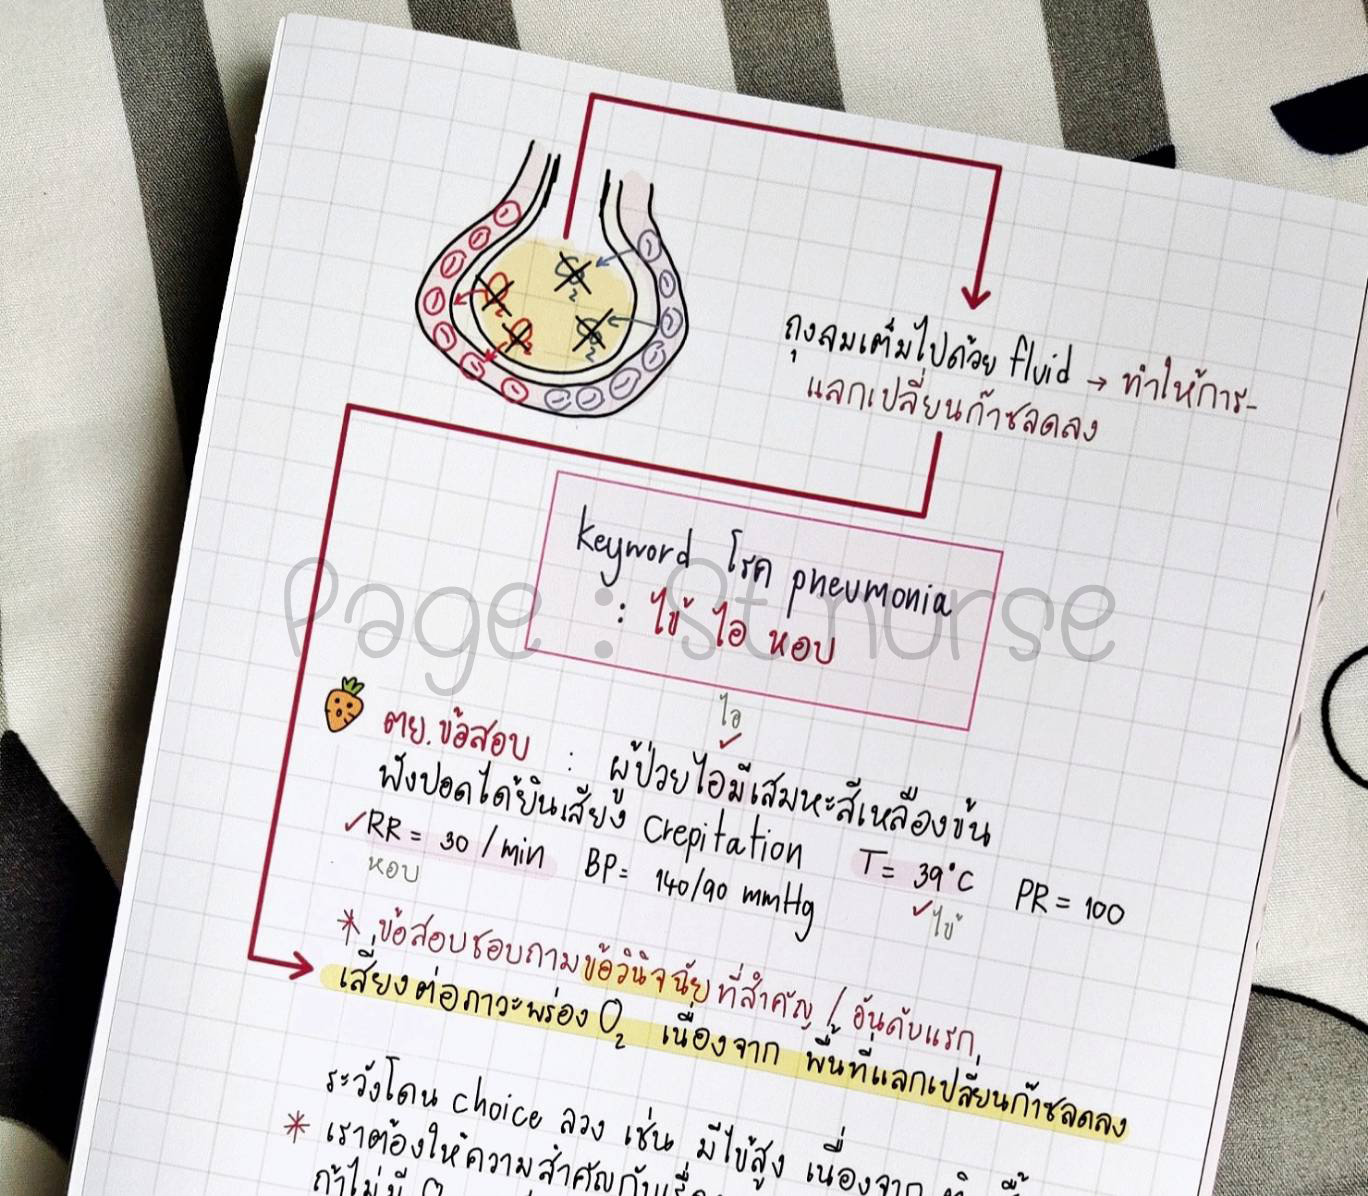 CO2
O2
O2
CO2
ถุงลมเต็มไปด้วย fluid → ทำให้การ-
แลกเปลี่ยนก๊าซลดลง
keyword โรค pneumonia
: ไข้ ไอ หอบ
Page : St.nurse
ไอ
ตย.ข้อสอบ : ผู้ป่วยไอมีเสมหะสีเหลืองข้น
ฟังปอดได้ยินเสียง Crepitation T= 39°C PR = 100
RR = 30 / min BP= 140/90 mmHg
หอบ ไข้
* ข้อสอบชอบถามข้อวินิจฉัยที่สำคัญ / อันดับแรก
เสี่ยงต่อภาวะพร่อง O2 เนื่องจาก พื้นที่แลกเปลี่ยนก๊าซลดลง
ระวังโดน choice ลวง เช่น มีไข้สูง เนื่องจาก
* เราต้องให้ความสำคัญกับ
ถ้าไม่มี